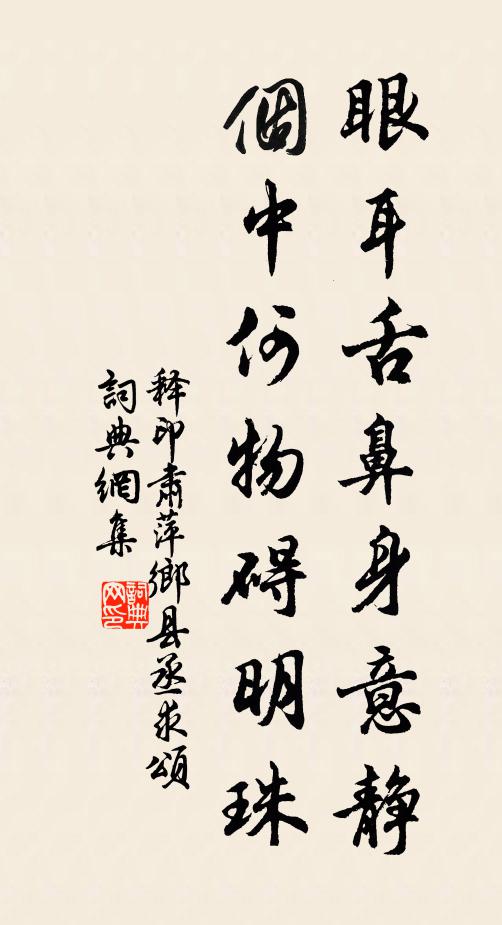 眼耳舌鼻身意静
個中何物碍明珠
释印肃萍鄉县丞求頌
詞典網集
詞典网印